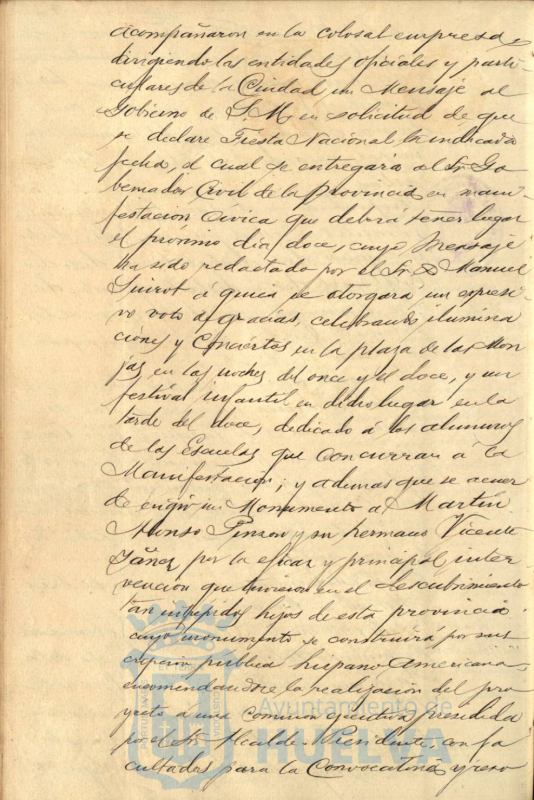 acompañaron en la colosal empresa,
dirigiendo las entidades oficiales y parti-
culares de la Ciudad un Mensaje al
Gobierno de S.M. en solicitud de que
se declare Fiesta Nacional la indicada
fecha, el cual se entregará al Sr. Go
bernador Civil de la Provincia en mani-
festación cívica que deberá tener lugar
el próximo dia doce, cuyo Mensaje
ha sido redactado por el Sr. D. Manuel
Siurot á quien se otorgará un expresi-
vo voto de gracias, celebrando ilumina
ciones y Conciertos en la plaza de las Mon
jas en las noches del once y el doce, y un
festival infantil en dicho lugar en la
tarde del doce, dedicado á los alumnos
de las Escuelas que concurran á la
Manifestación; y ademas que se acuer
de erigir un Monumento a Martín
Alonso Pinzon y su hermano Vicente
Yañez por la eficaz y principal inter
vencion que tuvieron en el descubrimiento
tan intrepidos hijos de esta provincia
cuyo monumento se construirá por sus
cripcion publica hispano-Americana,
encomendandose la realización del pro
yecto a una comision ejecutiva presidida
por el Sr. Alcalde-Presidente, con fa
cultades para la Convocatoria y reso
Ayuntamiento de
HUELVA